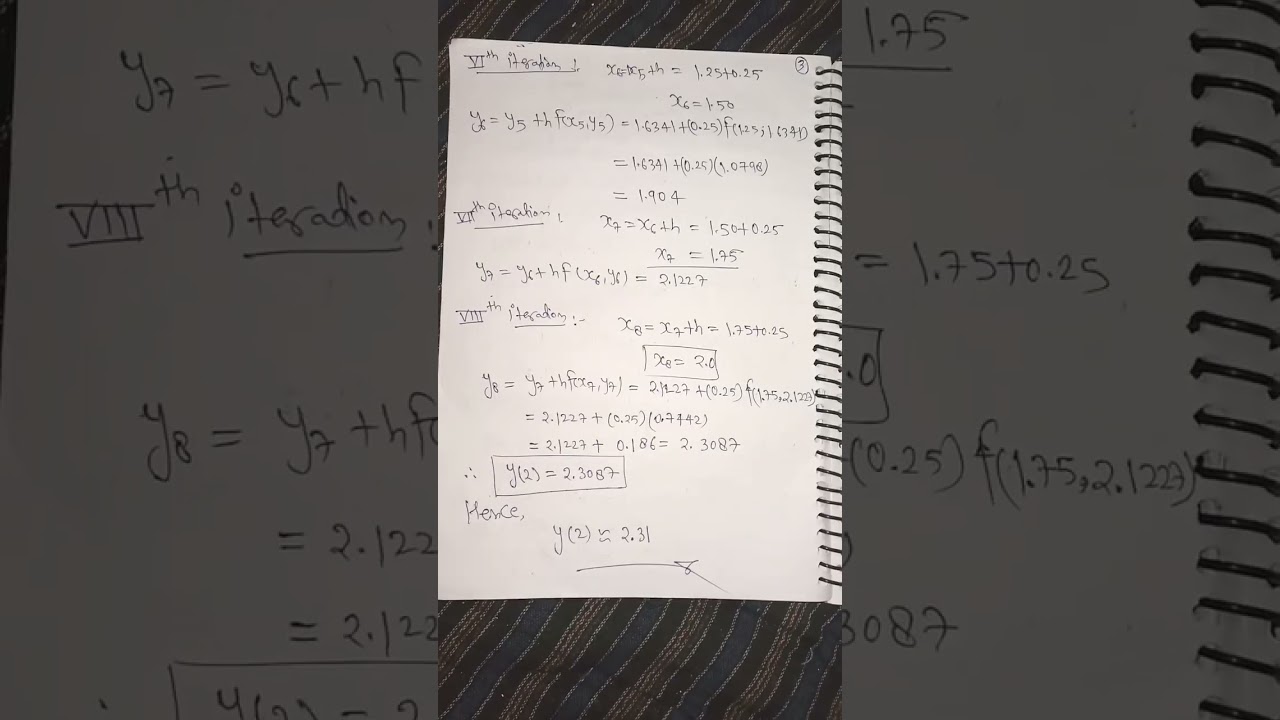 ③
VIth iteration :. x6=x5+h = 1.25+0.25
x6=1.50
y6 = y5 + h f(x5,y5) = 1.6341+(0.25)f(1.25,1.6341)
= 1.6341+(0.25)(1.0798)
= 1.904
VIIth iteration : x7=x6+h = 1.50+0.25
x7 = 1.75
y7 = y6+hf(x6,y6) = 2.1227
VIIIth iteration :- x8 = x7+h = 1.75+0.25
x8 = 2.0
y8 = y7 +hf(x7,y7) = 2.1227 +(0.25) f(1.75,2.1227)
= 2.1227+ (0.25)(0.7442)
= 2.1227+ 0.186= 2.3087
∴ y(2) = 2.3087
Hence,
y(2) ≈ 2.31
1.75
y7 = y6+hf
VIIIth iteration :
= 1.75+0.25
.0
y8 = y7 +hf
(0.25) f(1.75,2.1227)
= 2.122
= 2.122
3087
∴ y(2) = 2